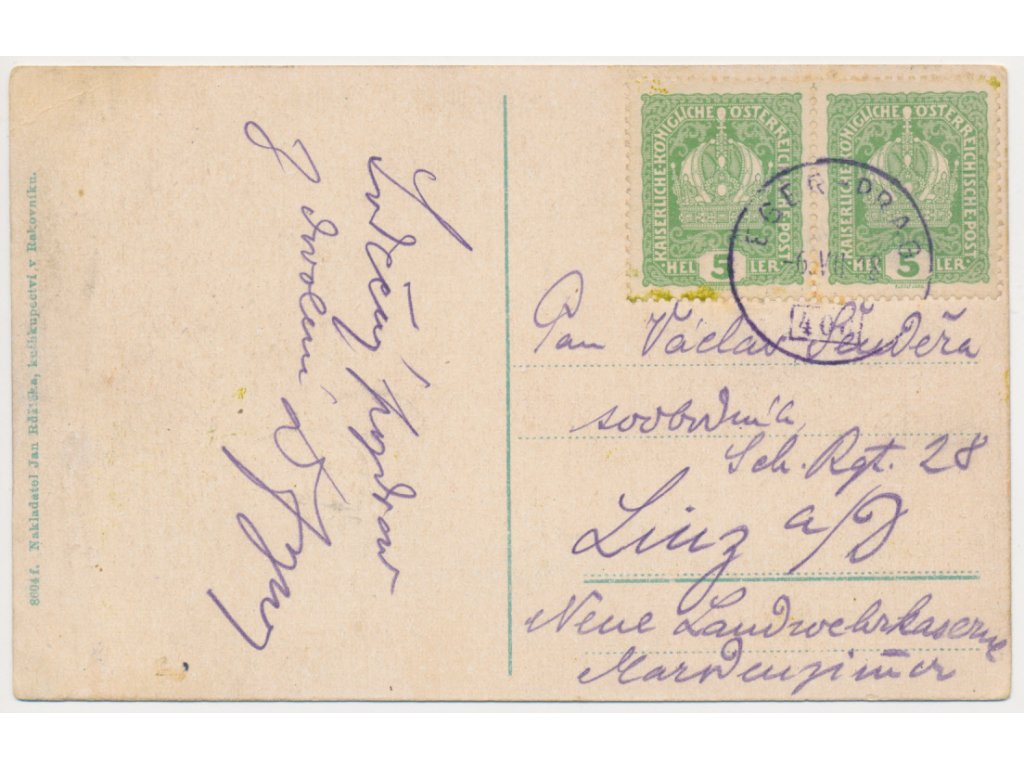 8694 f. Nakladatel Jan Růžička, knihkupectví v Rakovníku.
Srdečný pozdrav
z dovolení
KAISERLICHE KÖNIGLICHE ÖSTERREICHISCHE POST
HEL 5 LER
KAISERLICHE KÖNIGLICHE ÖSTERREICHISCHE POST
HEL 5 LER
EGER PRAG
-6.VII 18
Pan Václav
svobodník
Sch. Rgt. 28
Linz a/D
Neue Landwehrkaserne
Marodenzim̅er